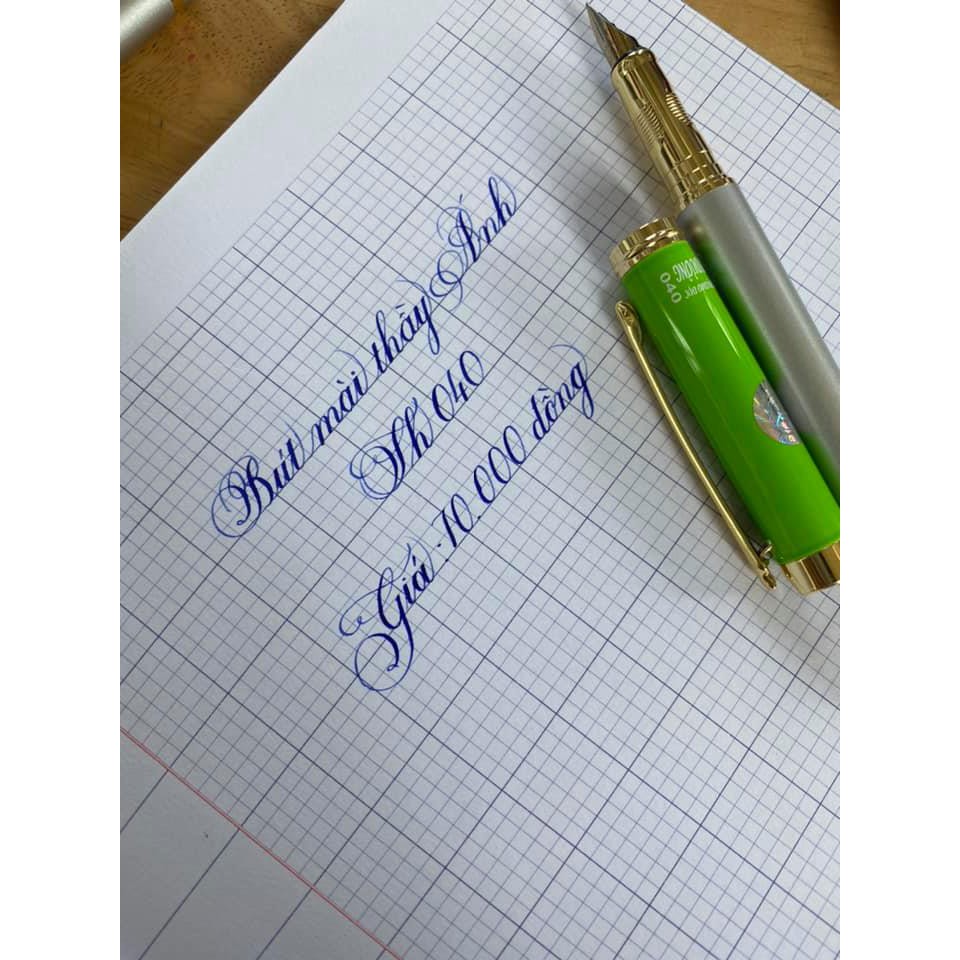 Bút mài thầy Ánh
Sh 040
Giá: 70.000 đồng
040